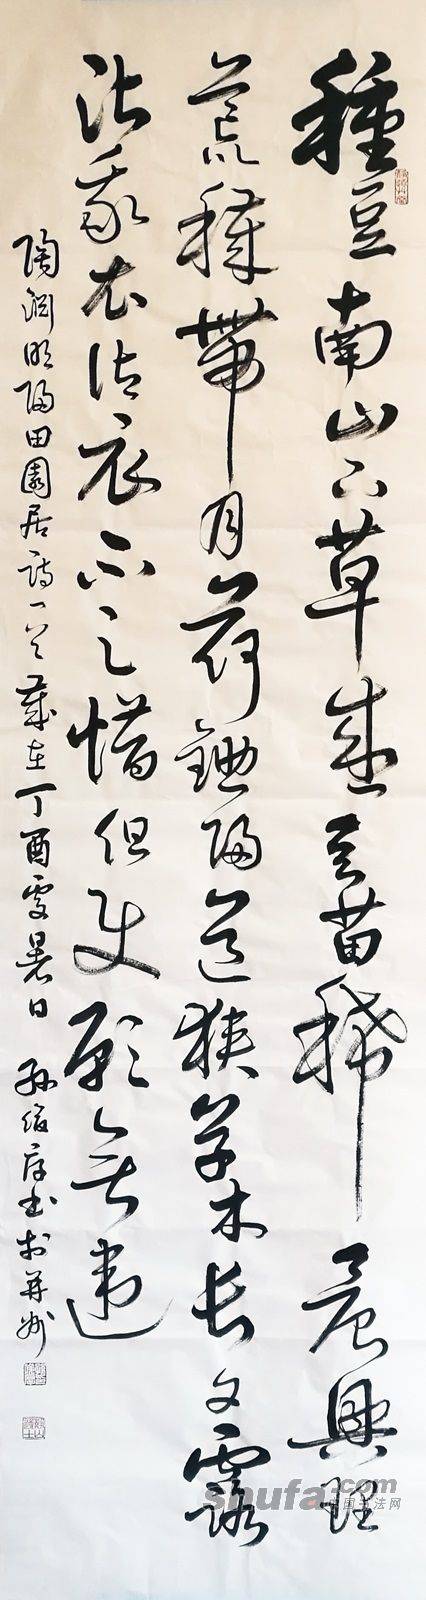 種豆南山下草盛豆苗稀晨興理
荒穢帶月荷鋤歸道狹草木長夕露
沾我衣沾衣不足惜但使願無違
陶淵明歸田園居詩一首歲在丁酉處暑日孫书於并州
shufa.com
中国书法网